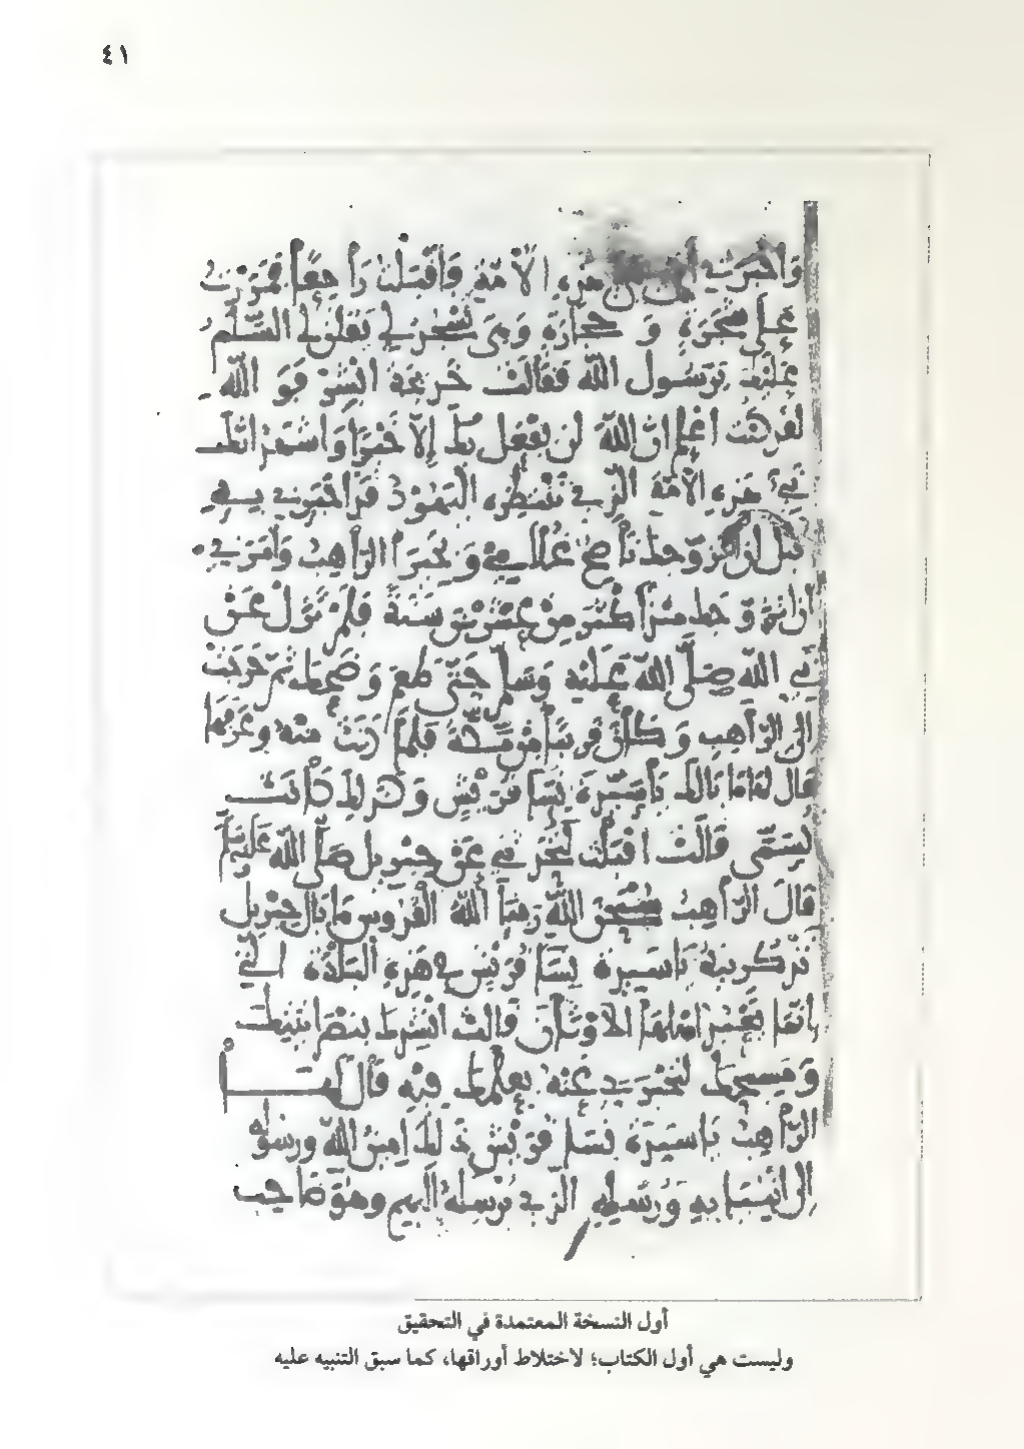 ٤١
وأخبرني هذه الأمة وأقبلت راجعا فمررت
على شجرة و حجارة وهي تسخر لي يقلن لي السلم
عليك يرسول الله فقالت خديجة ابشر فو الله
لقد كنت اعلم ان الله لن يفعل بك إلا خيرا واشهد انك
نبي هذه الامة الذي تنتظره اليهود قد اخبرني به
قبل ان ناصح غلامي و بحيرا الراهب وأمرني
منذ اكثر من عشرين سنة فلم تزل عن
نبي الله صلى الله عليه وسلم حتى طعم وضحك ثم خرجت
الى الراهب وكان قريبا من مكة فلما دنت منه وعرفها
قال لها ما بالك ياسيدة نسا قريش وكذلك كانت
تسمى قالت اقبلت لتخبرني عن جبريل صلى الله عليه وسلم
قال الراهب سبحن الله ربنا الله القدوس ما بال جبريل
تذكرينه ياسيدة نسا قريش في هذه البلدة التي
إنما يعبد اهلها الاوثان قالت انشدك بنصرانيتك
ومسيحك لتخبرني عنه بعلمك فيه قال لها
الراهب ياسيدة نسا قريش ذلك امين الله ورسوله
الى انبيايه ورسله الذي يرسله اليهم وهو صاحب
أول النسخة المعتمدة في التحقيق
وليست هي أول الكتاب؛ لاختلاط أوراقها، كما سبق التنبيه عليه